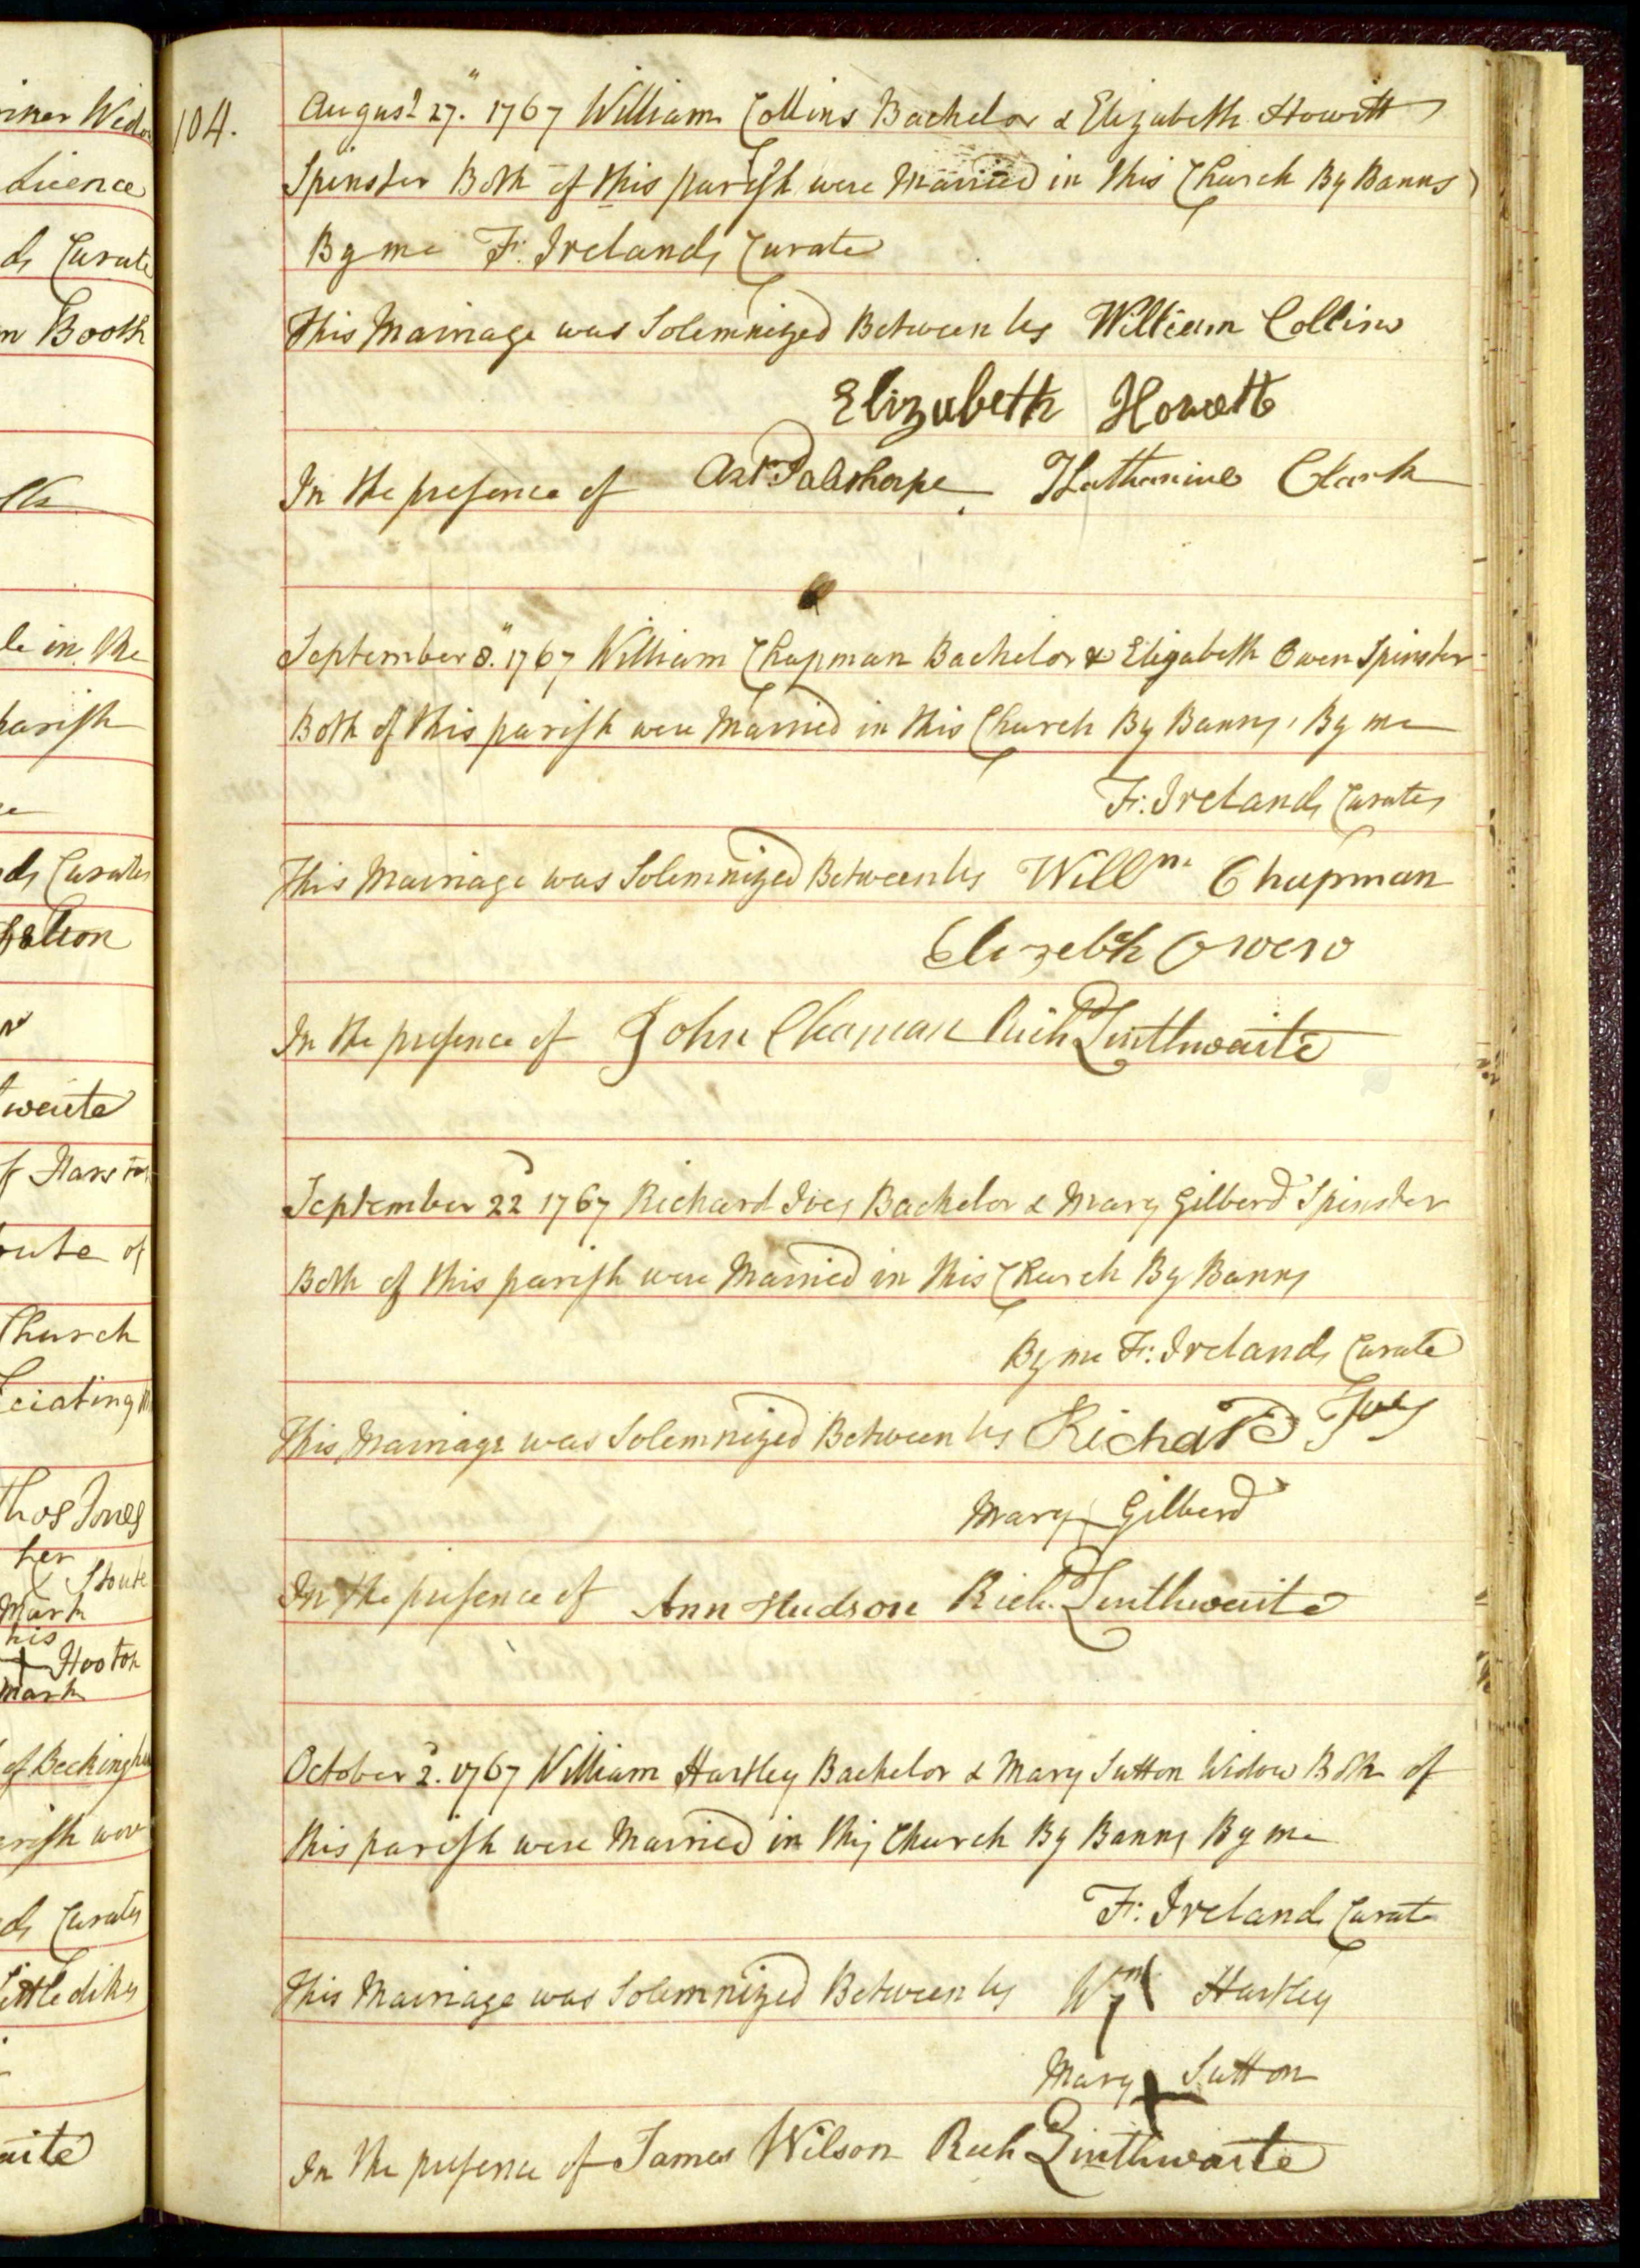 104.
August 27.th 1767 William Collins Bachelor & Elizabeth Howitt
Spinster Both of this parish were Married in this Church By Banns
By me F: Ireland, Curate
This Marriage was Solemnized Between Us William Collins
Elizabeth Howett
In the presence of Katharine Clark
September 8.th 1767 William Chapman Bachelor & Elizabeth Owen Spinster
Both of this parish were Married in this Church By Banns, By me
F: Ireland, Curate
This Marriage was Solemnized Between Us Willm. Chapman
Elizebth Owen
In the presence of John Chapman Rich Linthwaite
September 22 1767 Richard Ives Bachelor & Mary Gilberd Spinster
Both of this parish were Married in this Church By Banns
By me F: Ireland, Curate
This Marriage was Solemnized Between Us Richard Ives
Mary Gilberd
In the presence of Ann Hudson Rich. Linthwaite
October 2.d 1767 William Hartley Bachelor & Mary Sutton Widow Both of
this parish were Married in this Church By Banns By me
F: Ireland, Curate
This Marriage was Solemnized Between Us Wm Hartley
Mary X Sutton
In the presence of James Wilson Rich Linthwaite